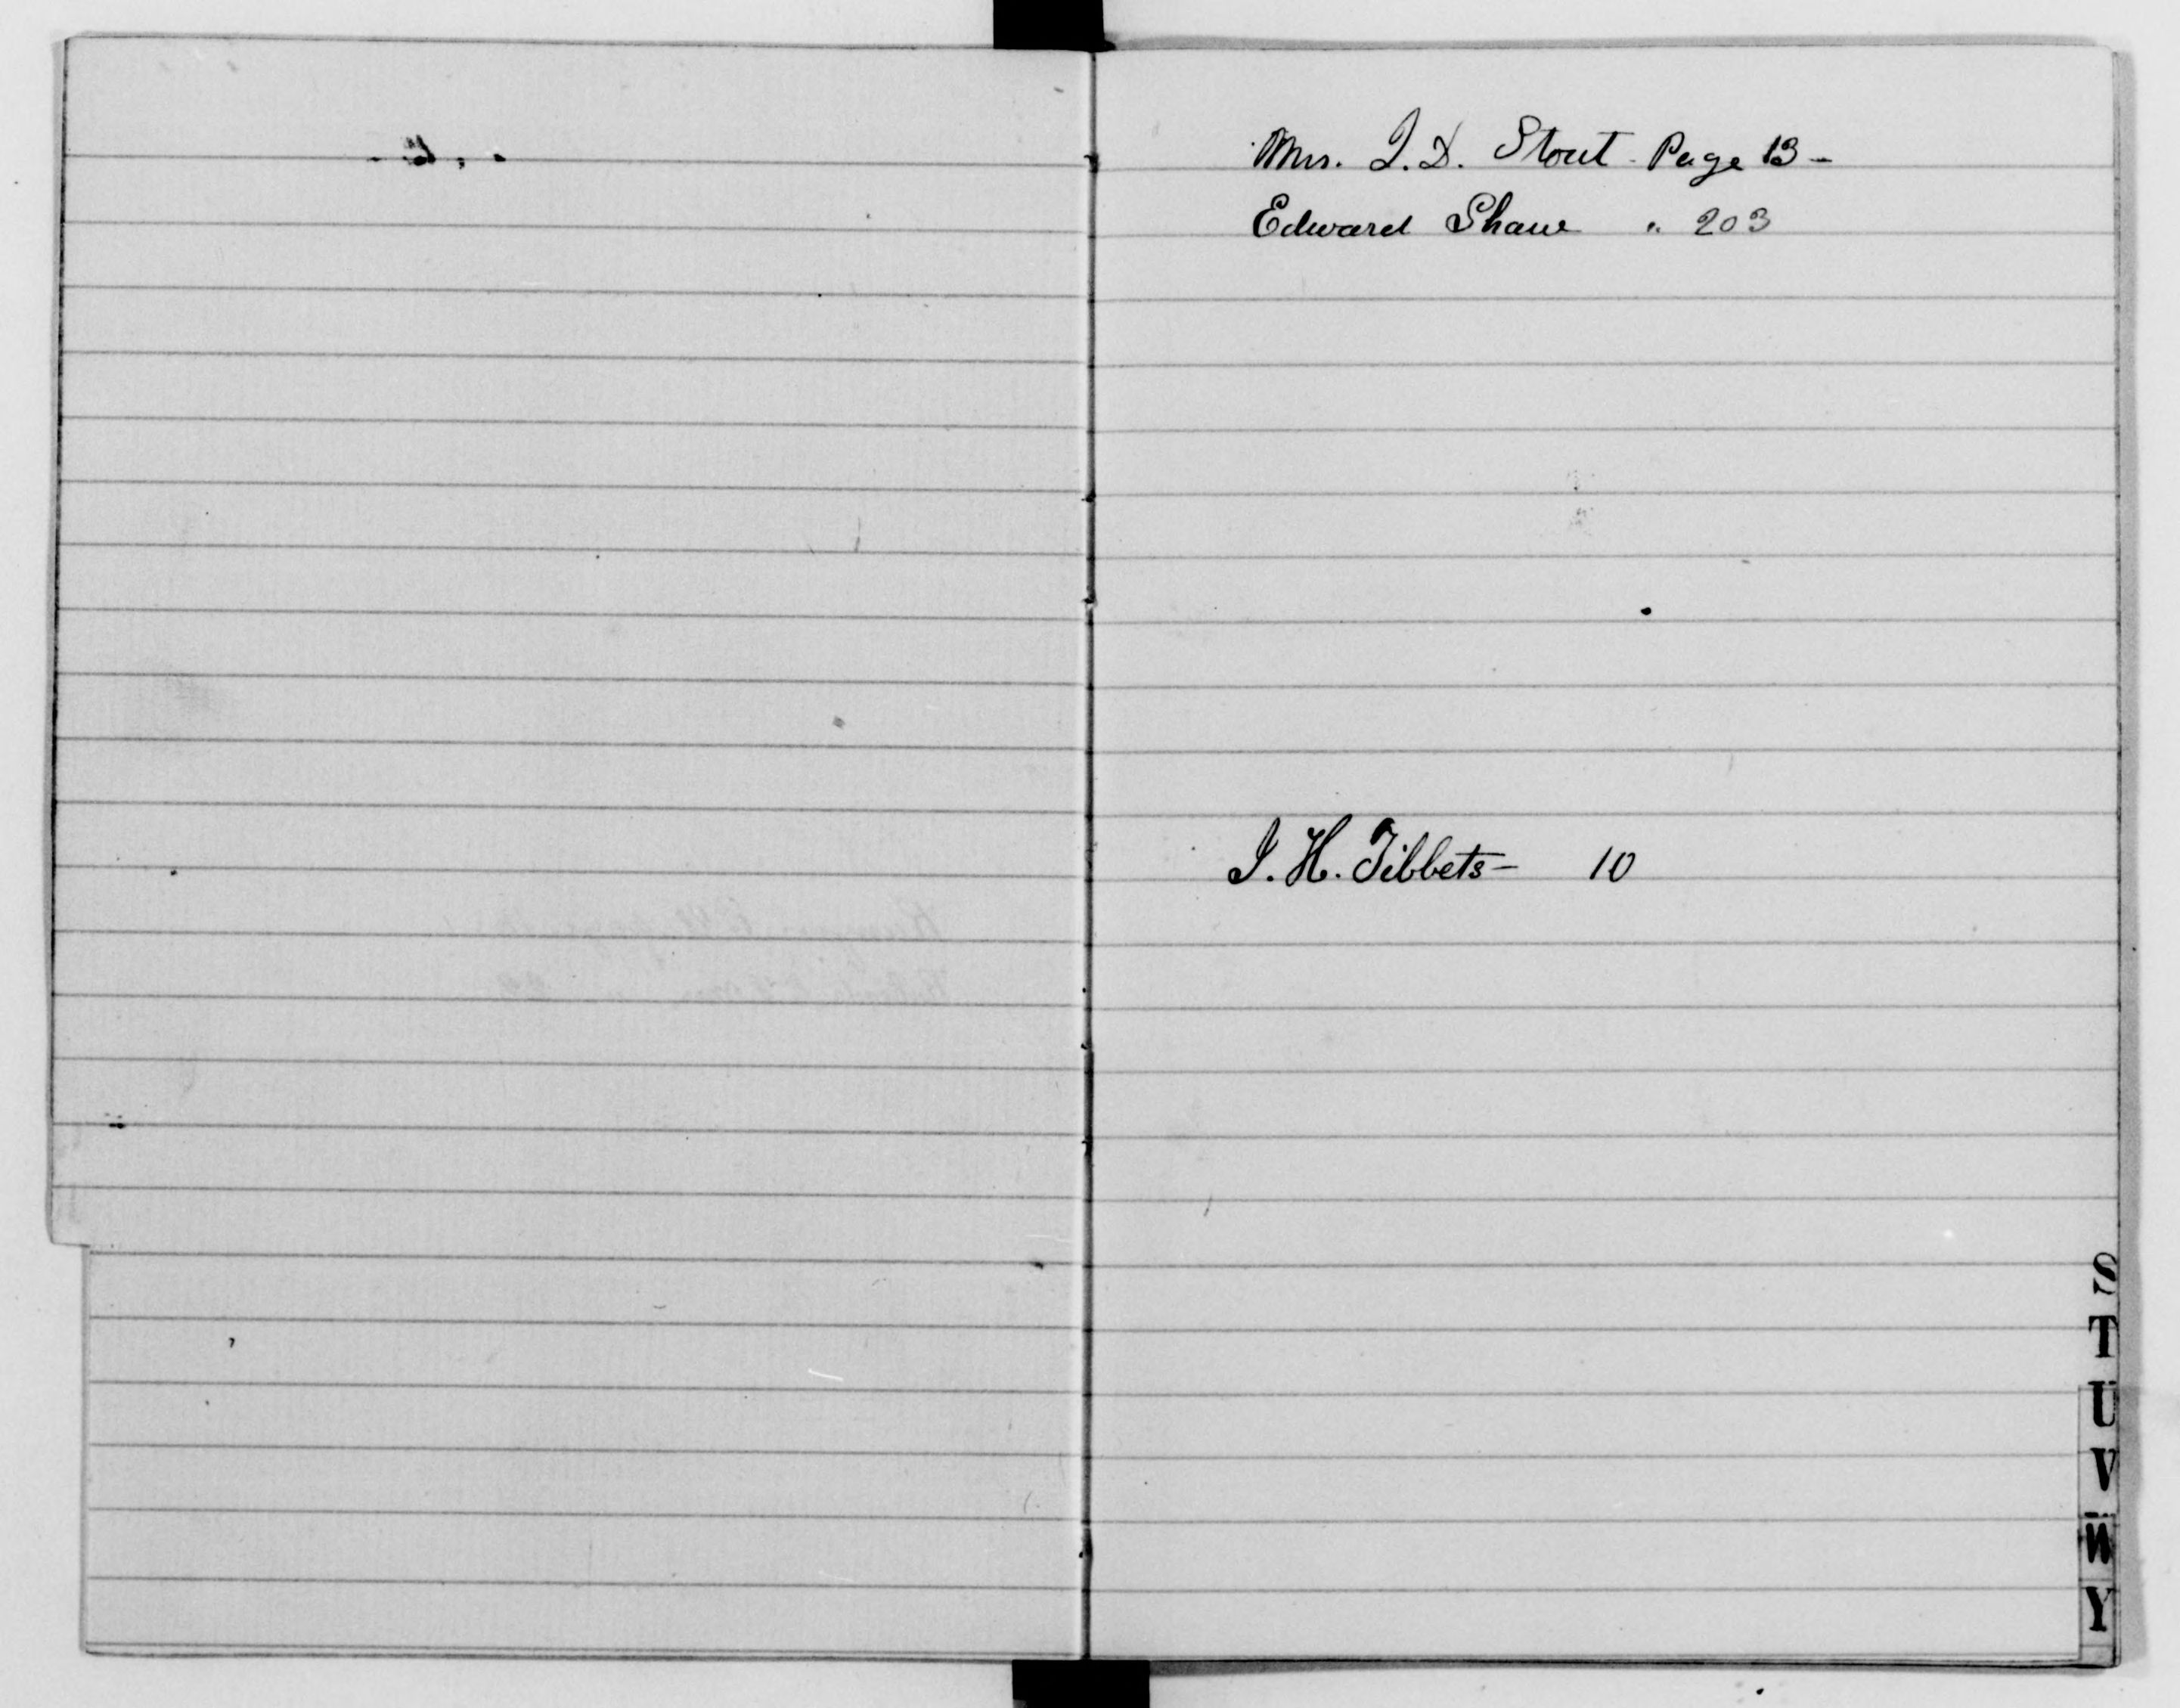 Mrs. I. D. Stout - Page 13 -
Edward Shaw " 203
I. H. Tibbets - 10
S
T
U
V
W
Y